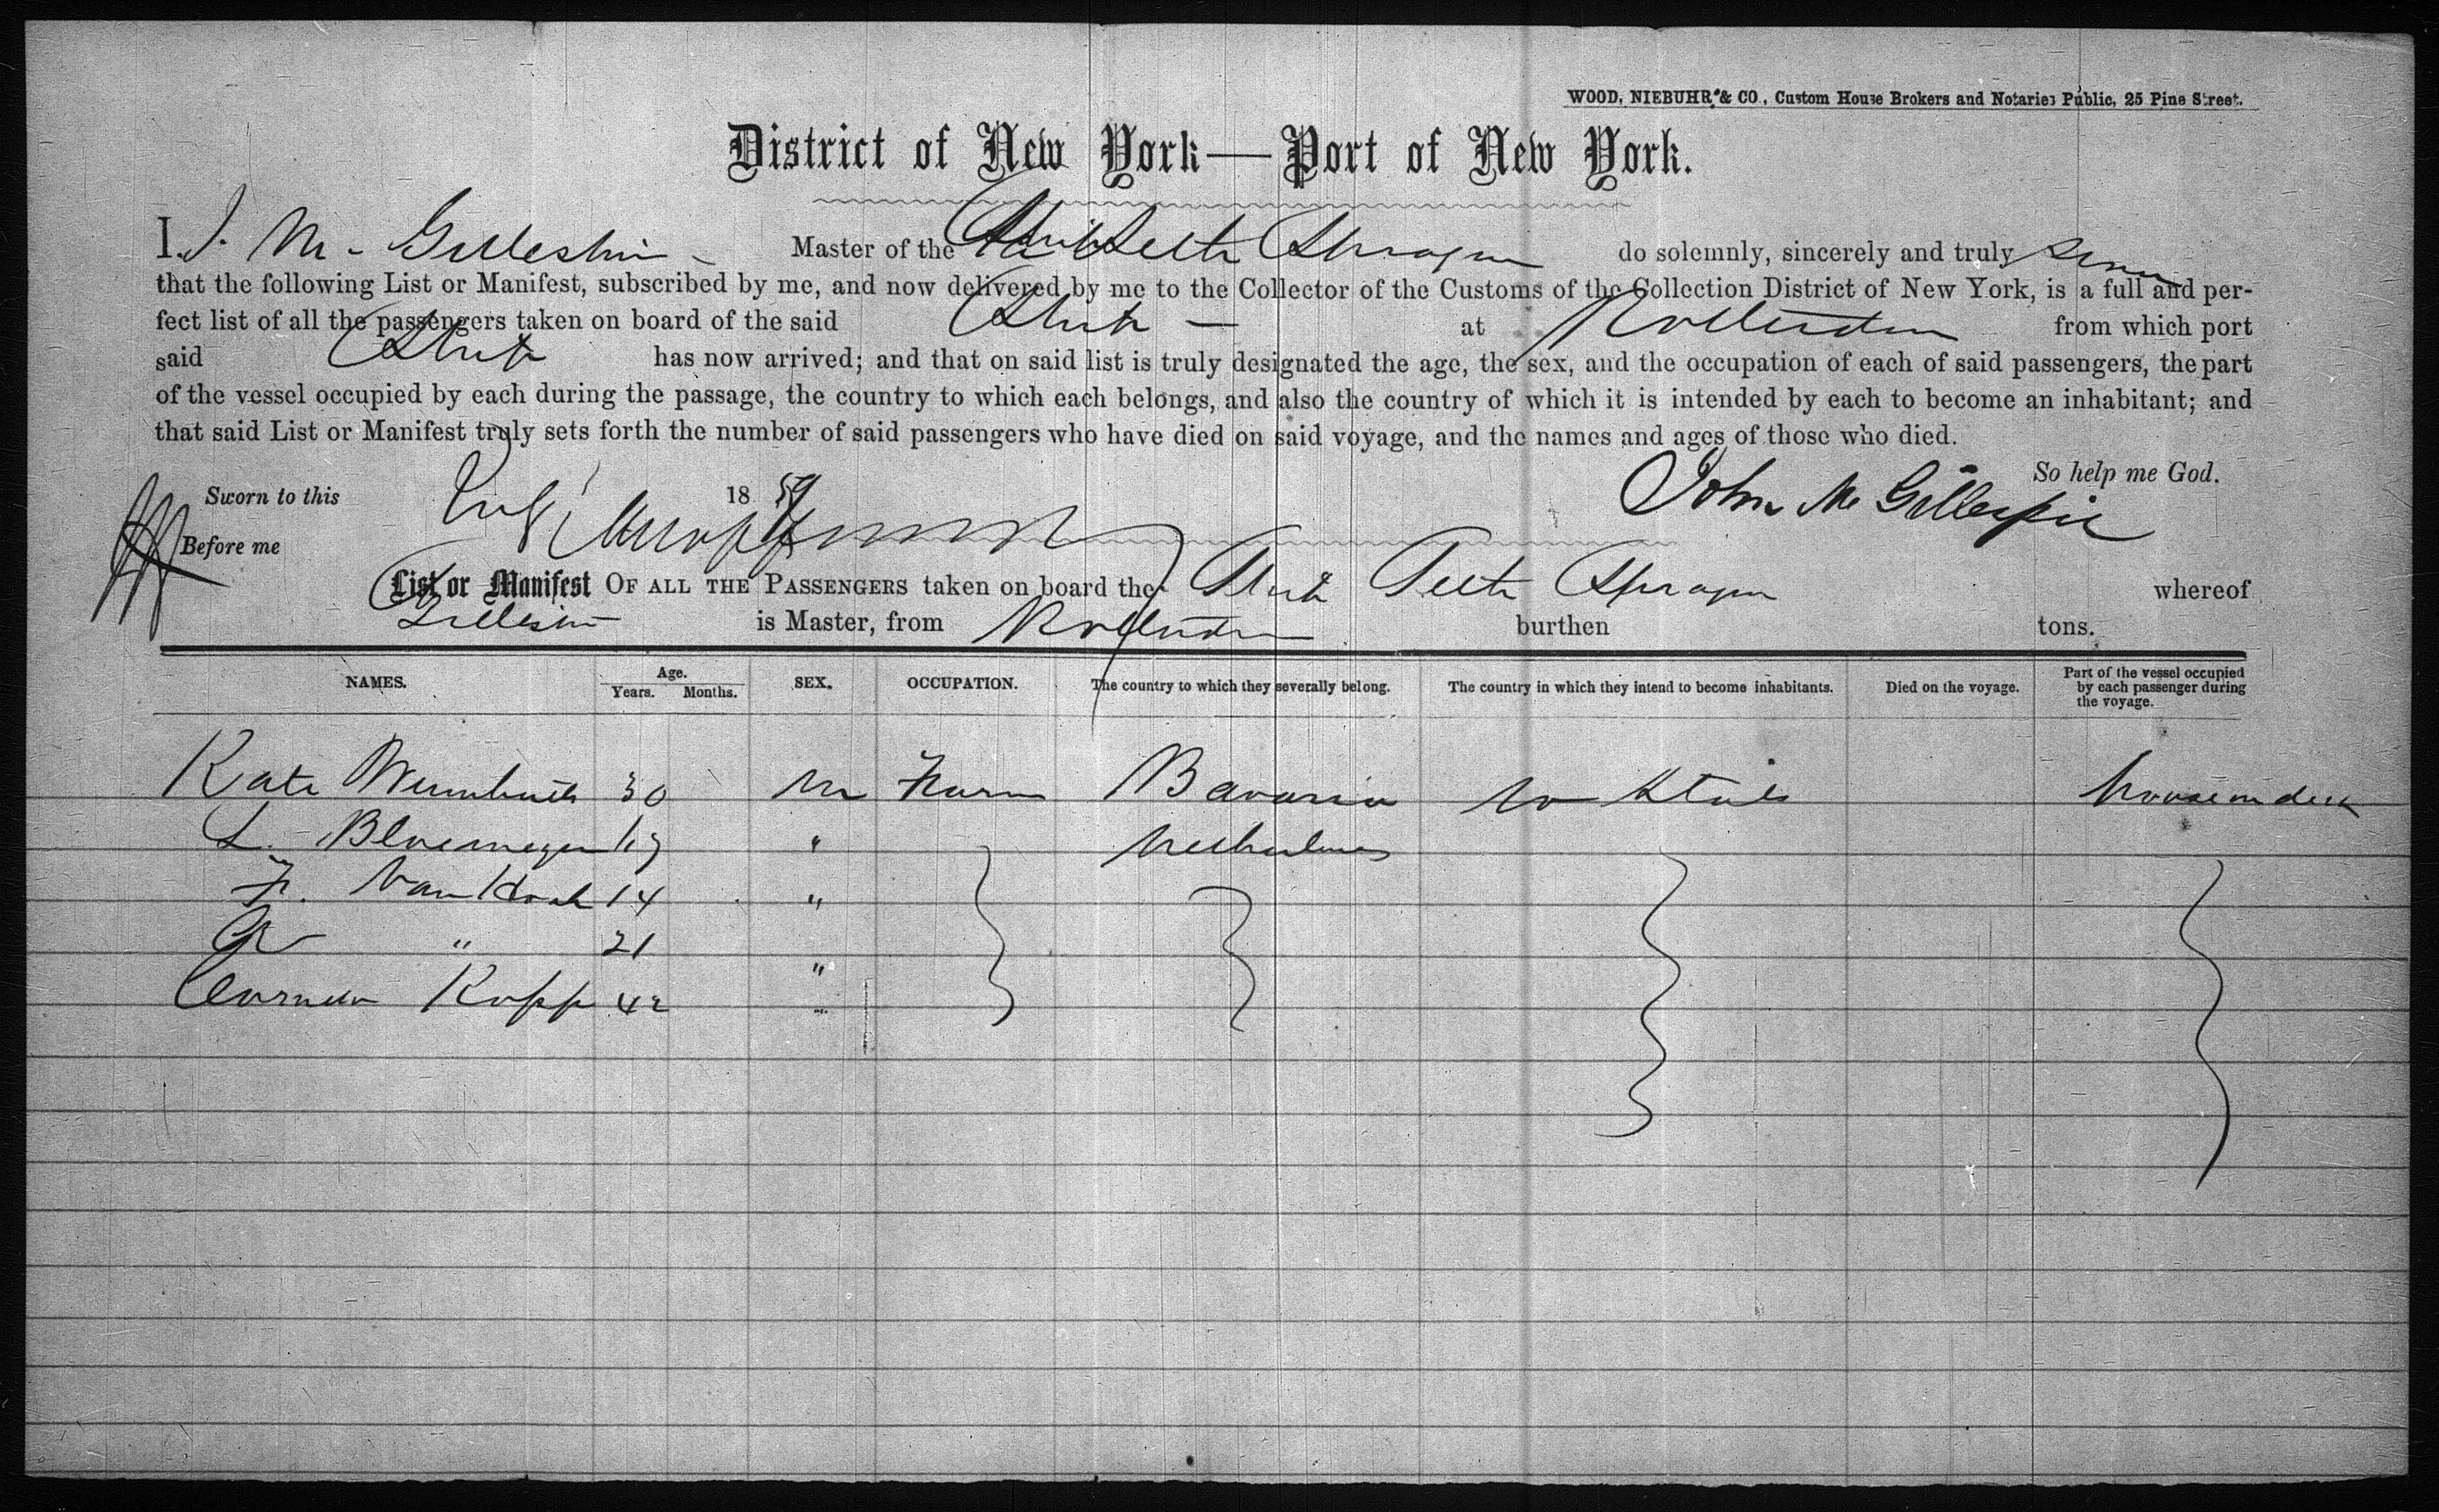 WOOD, NIEBUHR & CO., Custom House Brokers and Notaries Public, 25 Pine Street.
District of New York—Port of New York.
I. J. M. Gillespie Master of the Ship Seth Sprague do solemnly, sincerely and truly swear
that the following List or Manifest, subscribed by me, and now delivered by me to the Collector of the Customs of the Collection District of New York, is a full and per-
fect list of all the passengers taken on board of the said Ship — at Rotterdam from which port
said Ship has now arrived; and that on said list is truly designated the age, the sex, and the occupation of each of said passengers, the part
of the vessel occupied by each during the passage, the country to which each belongs, and also the country of which it is intended by each to become an inhabitant; and
that said List or Manifest truly sets forth the number of said passengers who have died on said voyage, and the names and ages of those who died.
So help me God.
Sworn to this 1859 John M Gillespie
Before me
List or Manifest OF ALL THE PASSENGERS taken on board the Ship Seth Sprague whereof
Gillespie is Master, from Rotterdam burthen tons.
NAMES. Age. Years. Months. SEX. OCCUPATION. The country to which they severally belong. The country in which they intend to become inhabitants. Died on the voyage. Part of the vessel occupied by each passenger during the voyage.
Kate 30 M Farm Bavaria U States house on deck
L. "
F. Van 14 "
" 21 "
Kopp 42 "